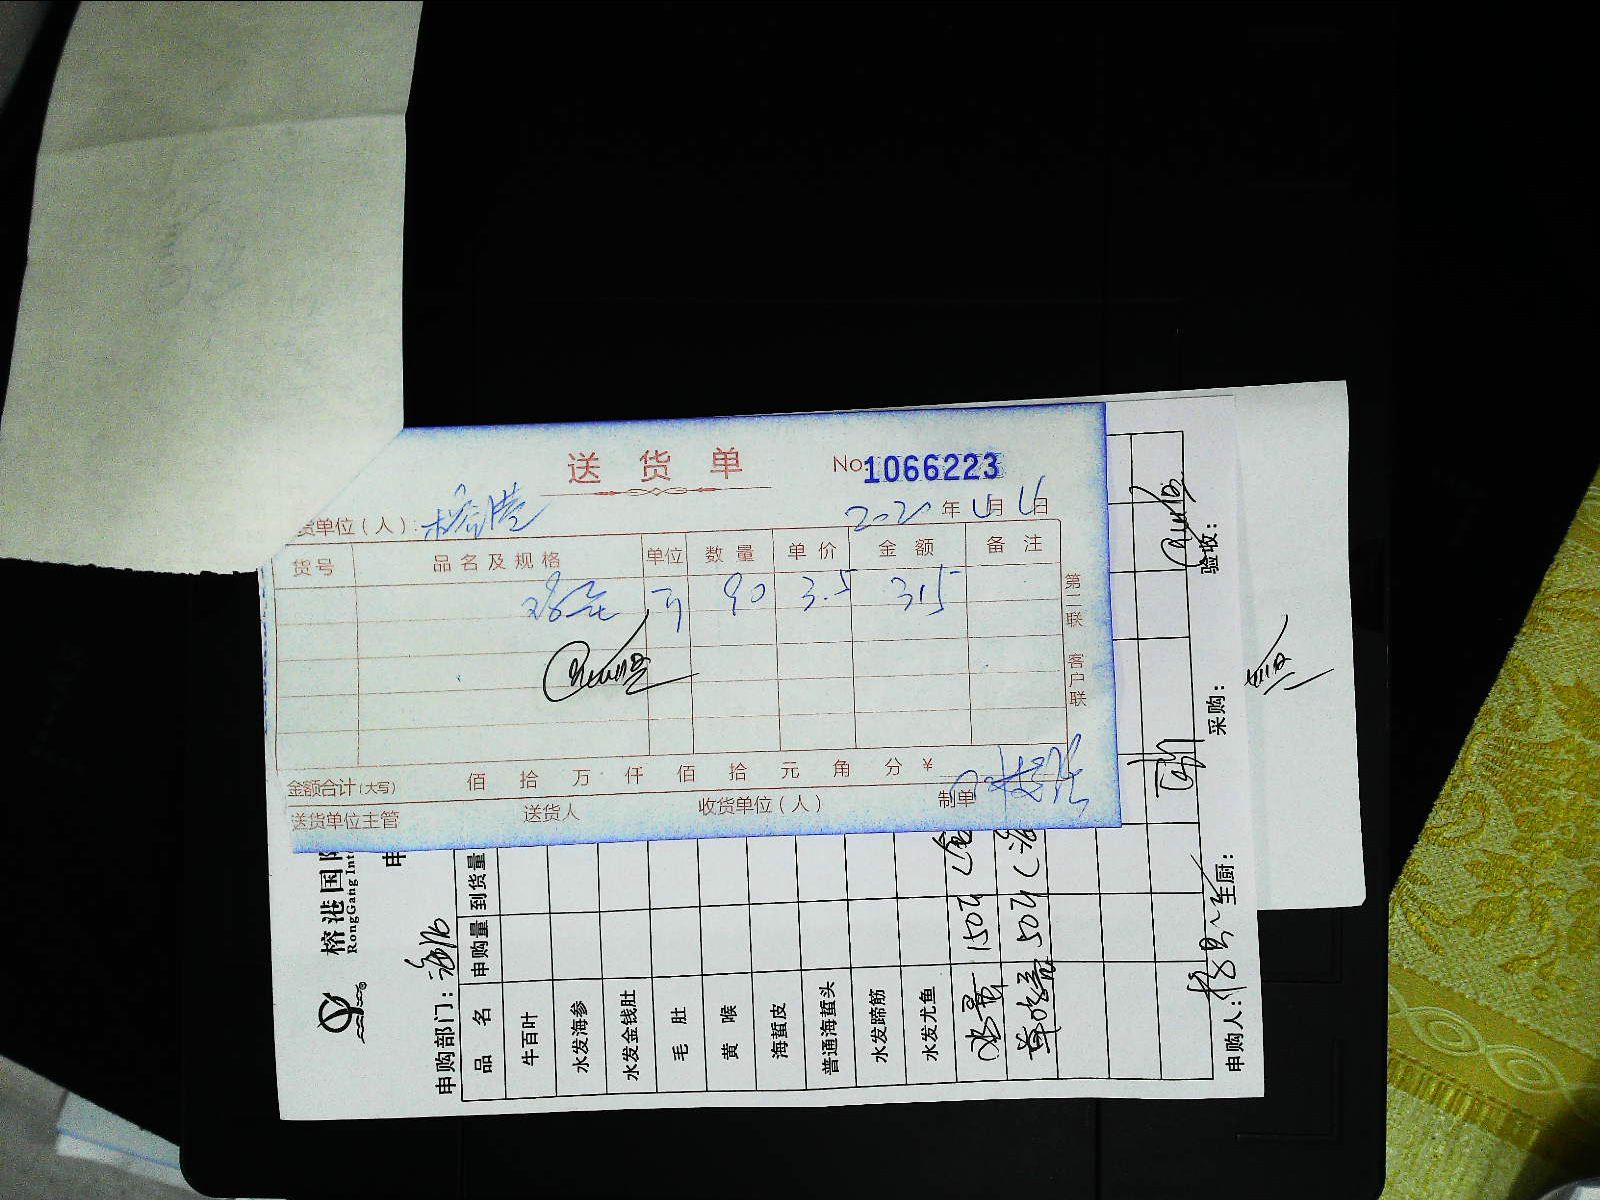 送货单
No.1066223
货单位(人): 榕港
2020年4月16日
货号 品名及规格 单位 数量 单价 金额 备注
斤 90 3.5 315
第二联 客户联
金额合计(大写) 佰 拾 万 仟 佰 拾 元 角 分 ¥
送货单位主管 送货人 收货单位(人) 制单
榕港国
RongGang Inte
申
申购部门:
品名 申购量 到货量
牛百叶
水发海参
水发金钱肚
毛肚
黄喉
海蜇皮
普通海蜇头
水发蹄筋
水发尤鱼
150斤
50斤
申购人: 主厨: 采购: 验收: